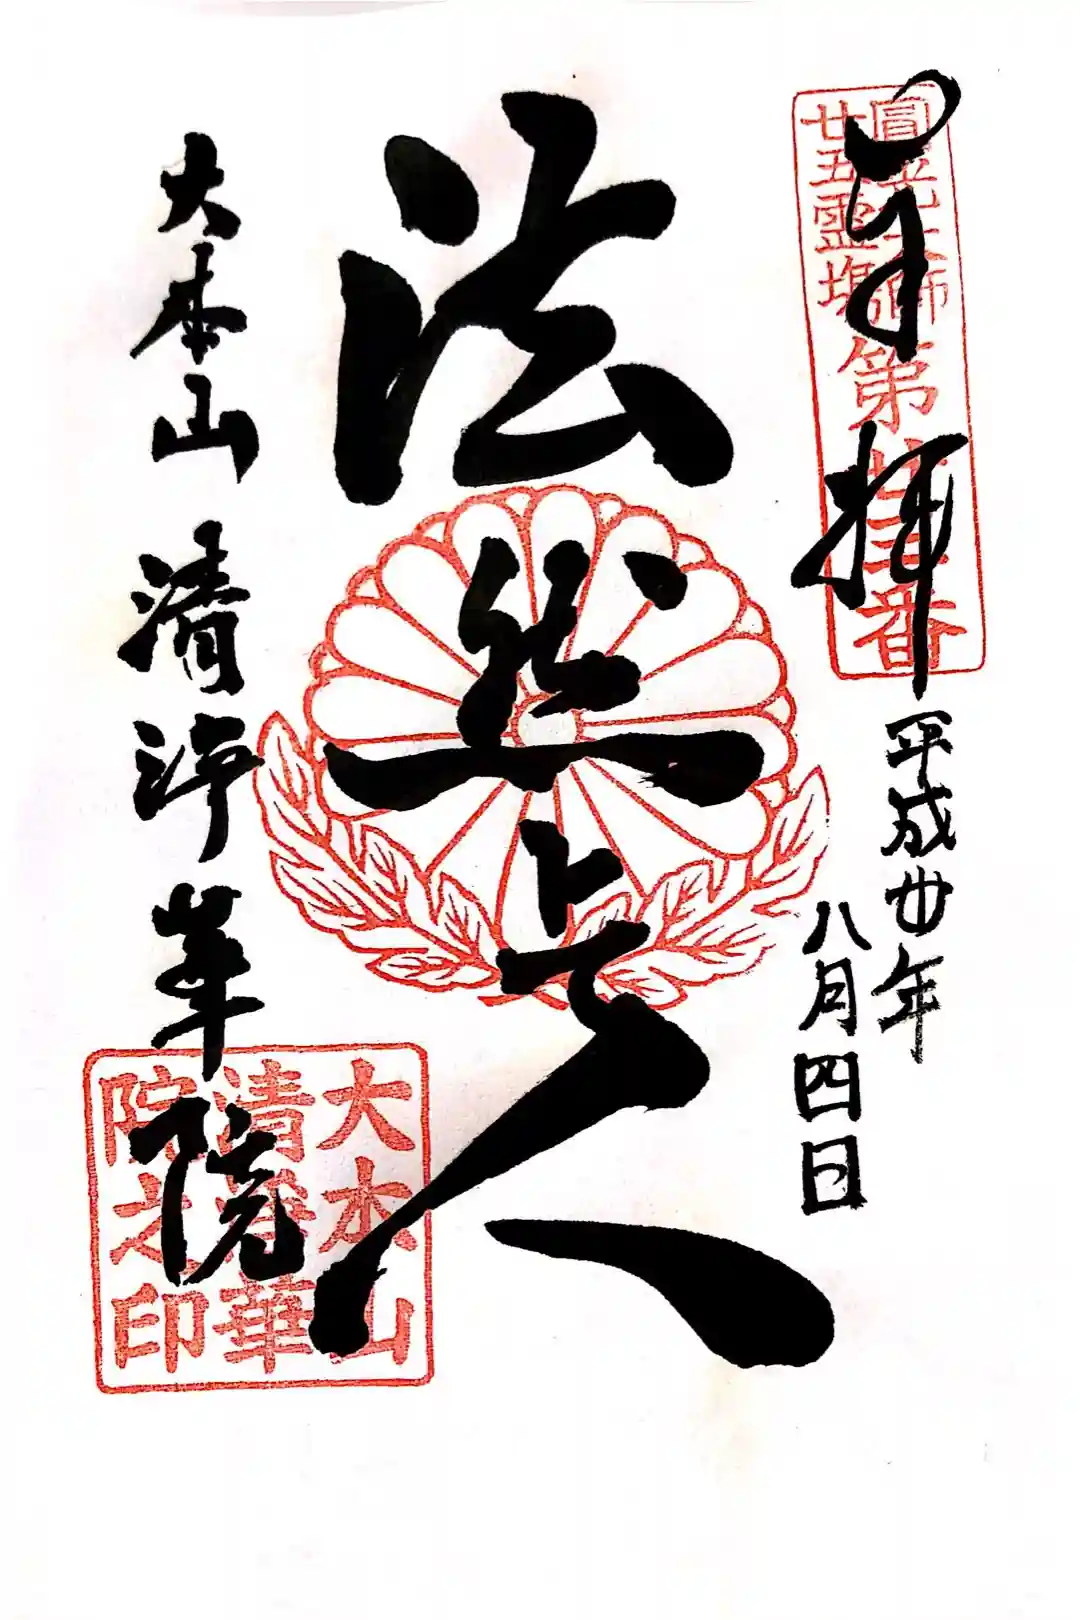 奉拝
平成廿年
八月四日
圓光大師
廿五霊場
第廿三番
法然上人
大本山 清浄華院
大本山
清浄華
院之印